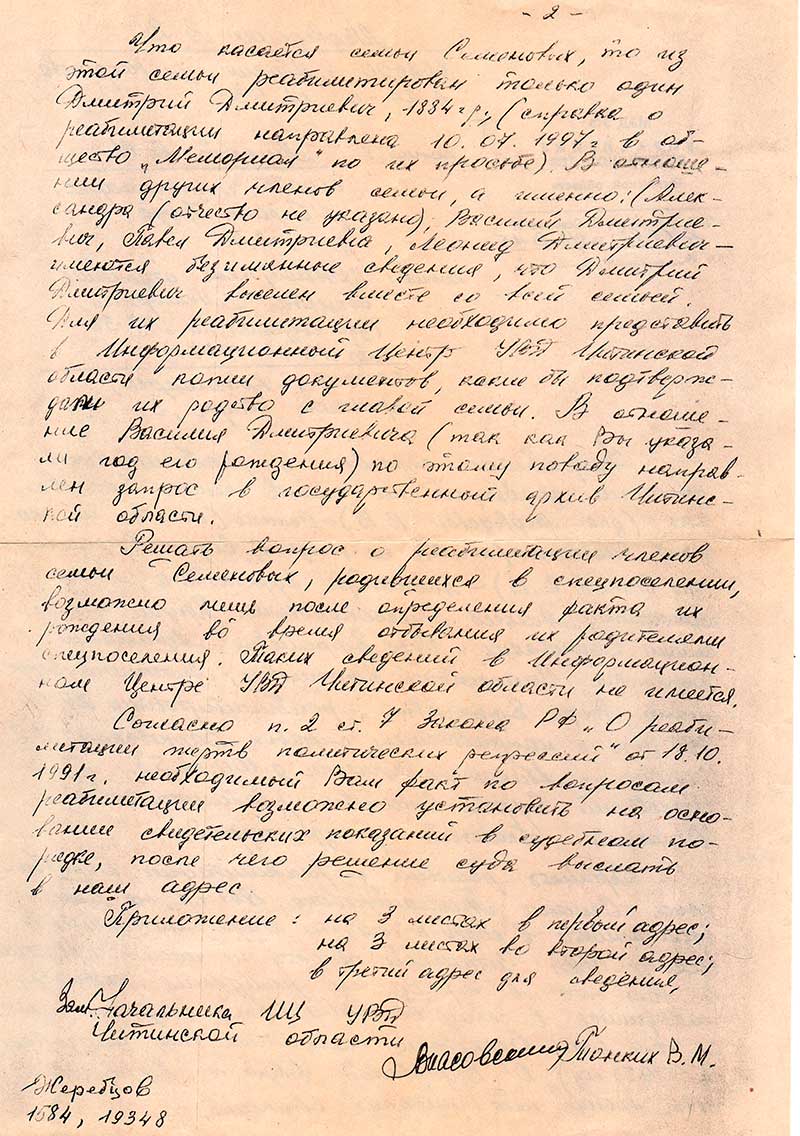 - 2 -
Что касается семьи Семеновых, то из
этой семьи реабилитирован только один
Дмитрий Дмитриевич, 1884 г.р., (справка о
реабилитации направлена 10.07.1997г в об-
щество „Мемориал" по их просьбе). В отноше-
нии других членов семьи, а именно: (Алек-
сандра (отчество не указано), Василий Дмитрие-
вич, Павел Дмитриевич, Леонид Дмитриевич —
имеются безимянные сведения, что Дмитрий
Дмитриевич выселен вместе со всей семьей.
Для их реабилитации необходимо представить
в Информационный Центр УВД Читинской
области копии документов, какие бы подтверж-
дали их родство с главой семьи. В отноше-
ние Василия Дмитриевича (так как Вы указа-
ли год его рождения) по этому поводу направ-
лен запрос в государственный архив Читинс-
кой области.
Решать вопрос о реабилитации членов
семьи Семеновых, родившихся в спецпоселении,
возможно лишь после определения факта их
рождения во время отбывания их родителями
спецпоселения. Таких сведений в Информацион-
ном Центре УВД Читинской области не имеется.
Согласно п. 2 ст. 7 Закона РФ „О реаби-
литации жертв политических репрессий" от 18.10.
1991г. необходимый Вам факт по вопросам
реабилитации возможно установить на осно-
вании свидетельских показаний в судебном по-
рядке, после чего решение суда выслать
в наш адрес.
Приложение: на 3 листах в первый адрес;
на 3 листах во второй адрес;
в третий адрес для сведения,
Зам. Начальника ИЦ УВД
Читинской области
Тонких В.М.
Жеребцов
1584, 19348